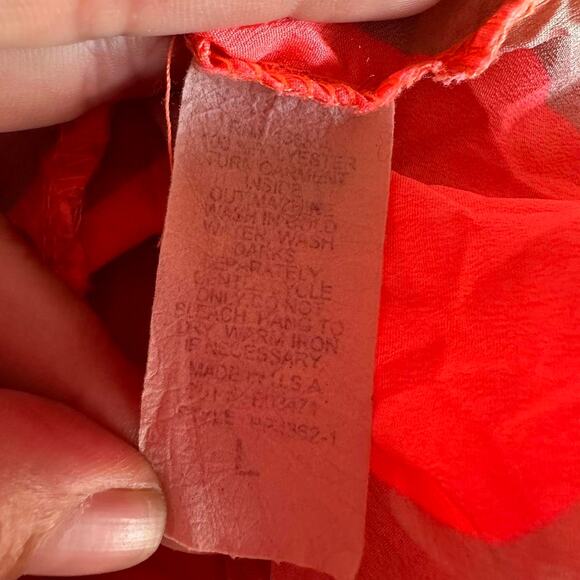 POLYESTER
TURN GARMENT
INSIDE
OUT MACHINE
WASH IN COLD
WATER, WASH
DARKS
SEPARATELY
GENTLE CYCLE
ONLY DO NOT
BLEACH HANG TO
DRY. WARM IRON
IF NECESSARY
MADE IN U.S.A
STYLE
L